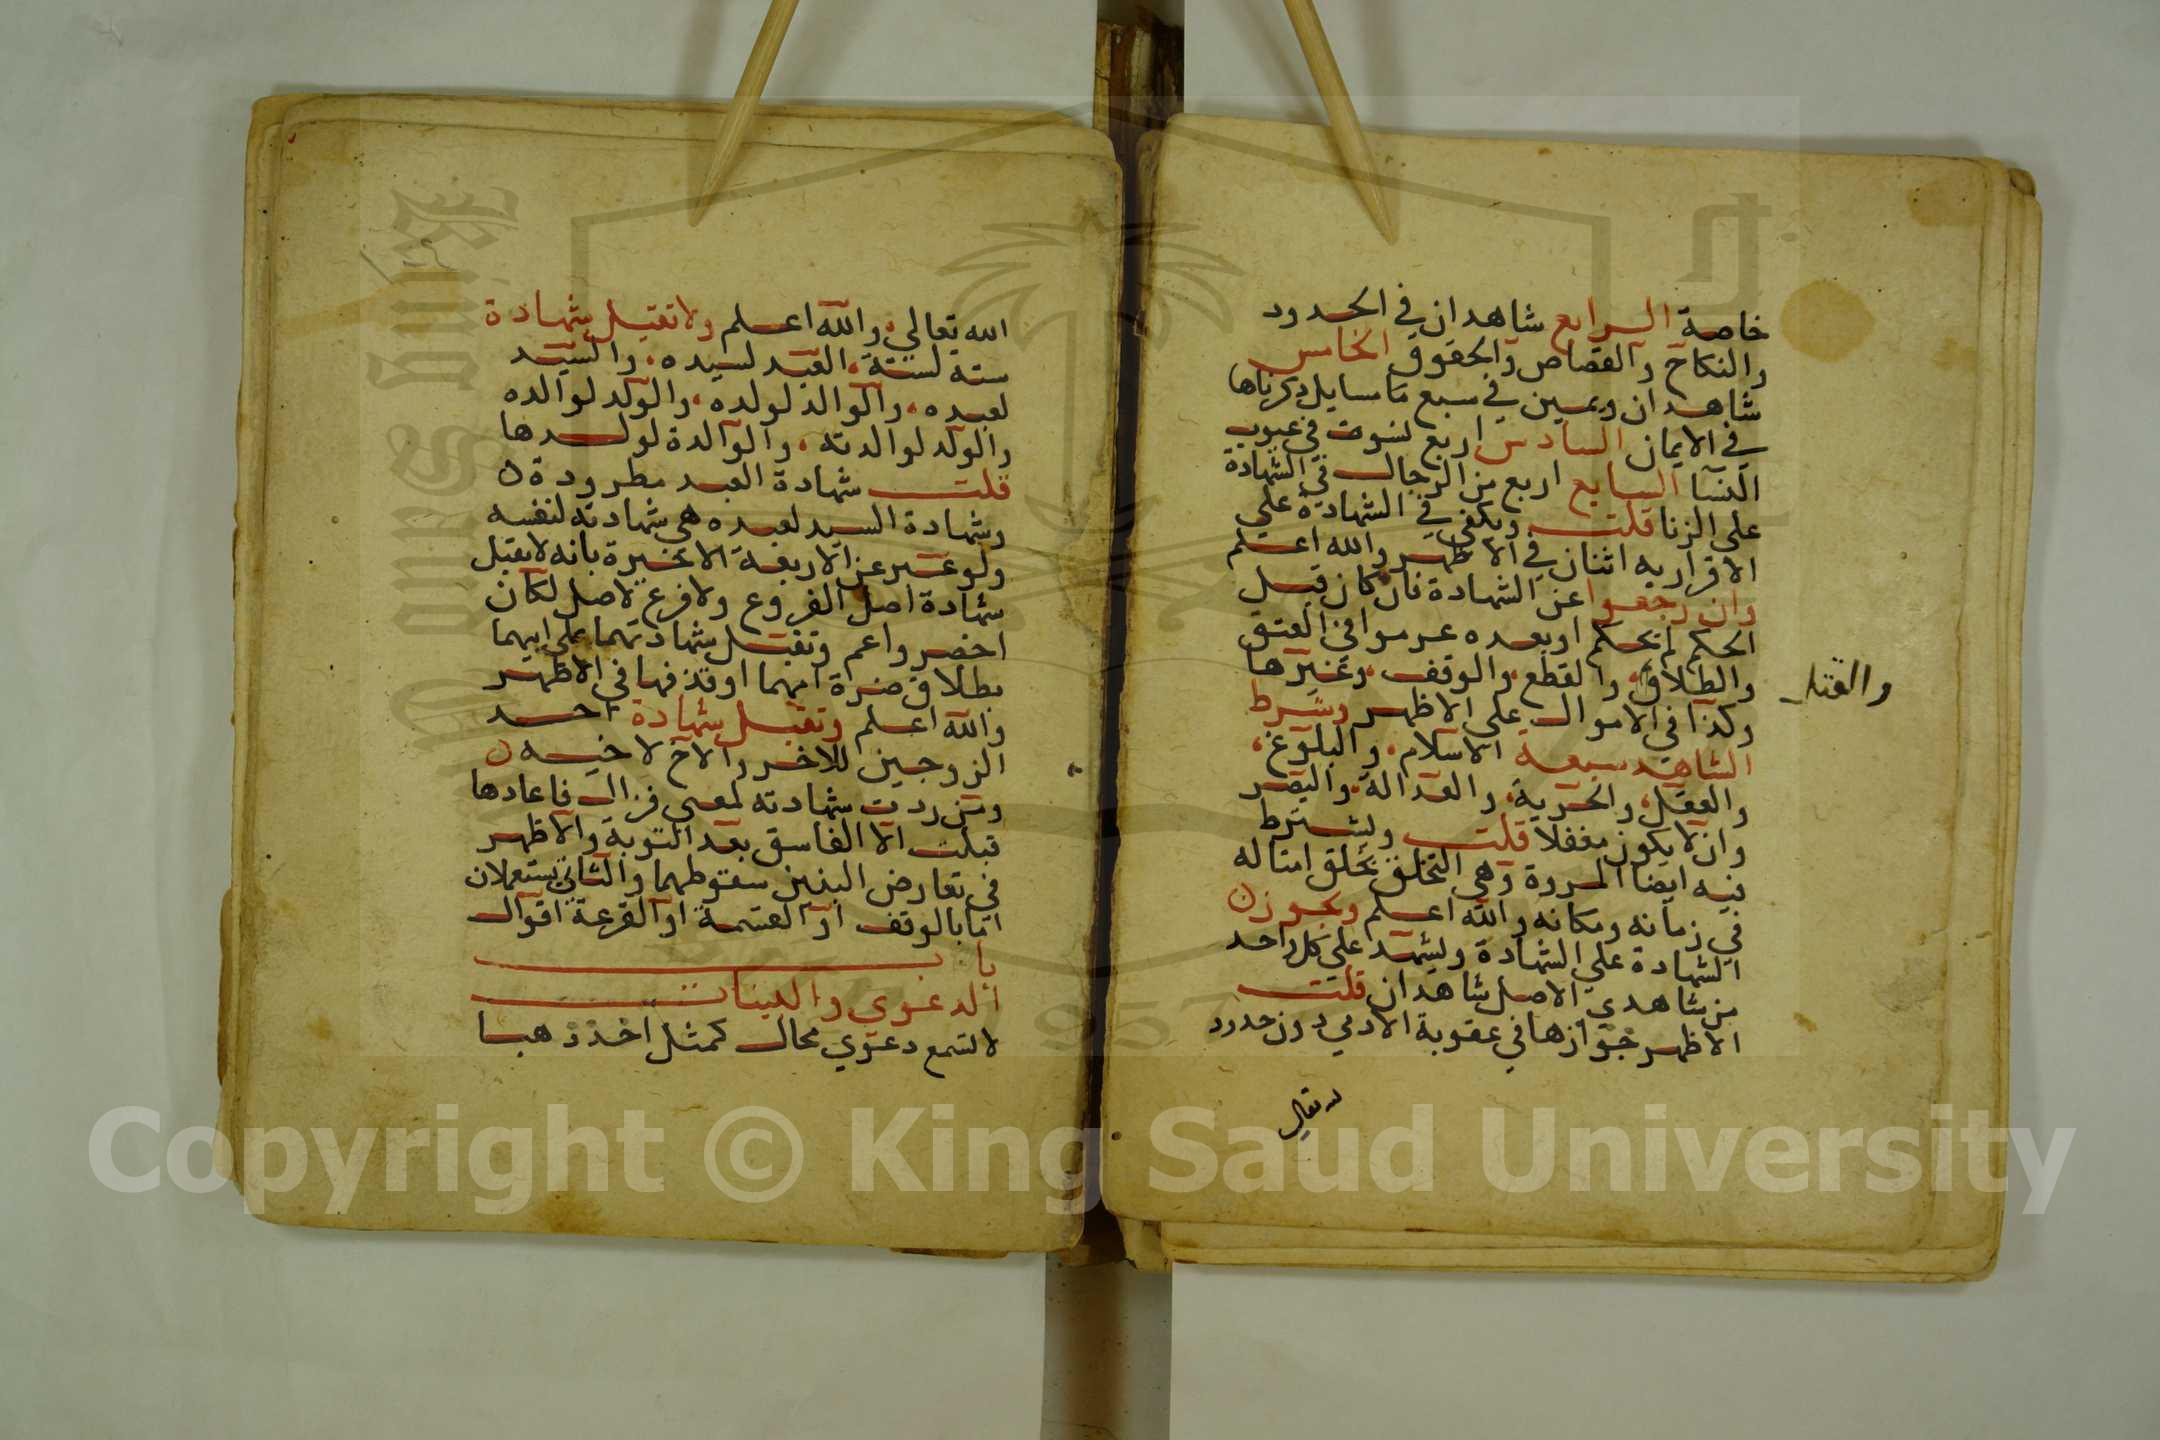 خاصة الرابع شاهدان في الحدود
والنكاح والقصاص والحقوق الخامس
شاهدان ويمين في سبع مسايل ذكرناها
في الايمان السادس اربع نسوة في عيوب
النسا السابع اربع من الرجال في الشهادة
على الزنا قلت ويكفي في الشهادة على
الاقرار به اثنان في الاظهر والله اعلم
وان رجعوا عن الشهادة فان كان قبل
الحكم لم يحكم او بعده غرموا في العتق
والطلاق والقطع والوقف وغيرها
والقتل
وكذا في الاموال على الاظهر وشرط
الشاهد سبعة الاسلام والبلوغ
والعقل والحرية والعدالة والبصر
وان لا يكون مغفلا قلت ويشترط
فيه ايضا المروة وهي التخلق بخلق امثاله
في زمانه ومكانه والله اعلم ويجوز
الشهادة على الشهادة ويشهد على كل واحد
من شاهدي الاصل شاهدان قلت
الاظهر جوازها في عقوبة الادمي دون حدود
الله تعالى
الله تعالى والله اعلم ولا تقبل شهادة
ستة لستة العبد لسيده والسيد
لعبده والوالد لولده والولد لوالده
والولد لوالدته والوالدة لولدها
قلت شهادة العبد مطرودة
وشهادة السيد لعبده هي شهادته لنفسه
ولو عبر عن الاربعة الاخيرة بانه لا يقبل
شهادة اصل لفروع ولا فرع لاصل لكان
اخصر واعم وتقبل شهادتهما على ابيهما
بطلاق ضرة امهما او قذفها في الاظهر
والله اعلم وتقبل شهادة احد
الزوجين للاخر والاخ لاخيه
ومن ردت شهادته لمعنى فزال فاعادها
قبلت الا الفاسق بعد التوبة والاظهر
في تعارض البينتين سقوطهما والثاني يستعملان
اما بالوقف او القسمة او القرعة اقوال
باب
الدعوي والبينات
لا تسمع دعوي محال كمثل احد ذهبا
Copyright © King Saud University
King Saud University
1957